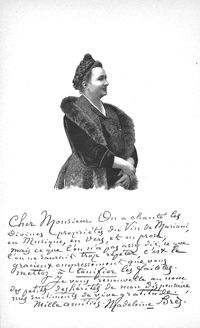 Cher Monsieur On a chanté les
Divines propriétés du Vin de Mariani
en Musique, en Vers, et en prose,
mais ce que l'on n'a pas assez dit, ce que
l'on ne saurait trop répéter, c'est le
gracieux empressement que vous
mettez à tonifier les faibles.
Je vous renouvelle au nom
des petits déshérités de mon dispensaire
mes sentiments de vive gratitude.
Mille amitiés. Madeleine Brès.